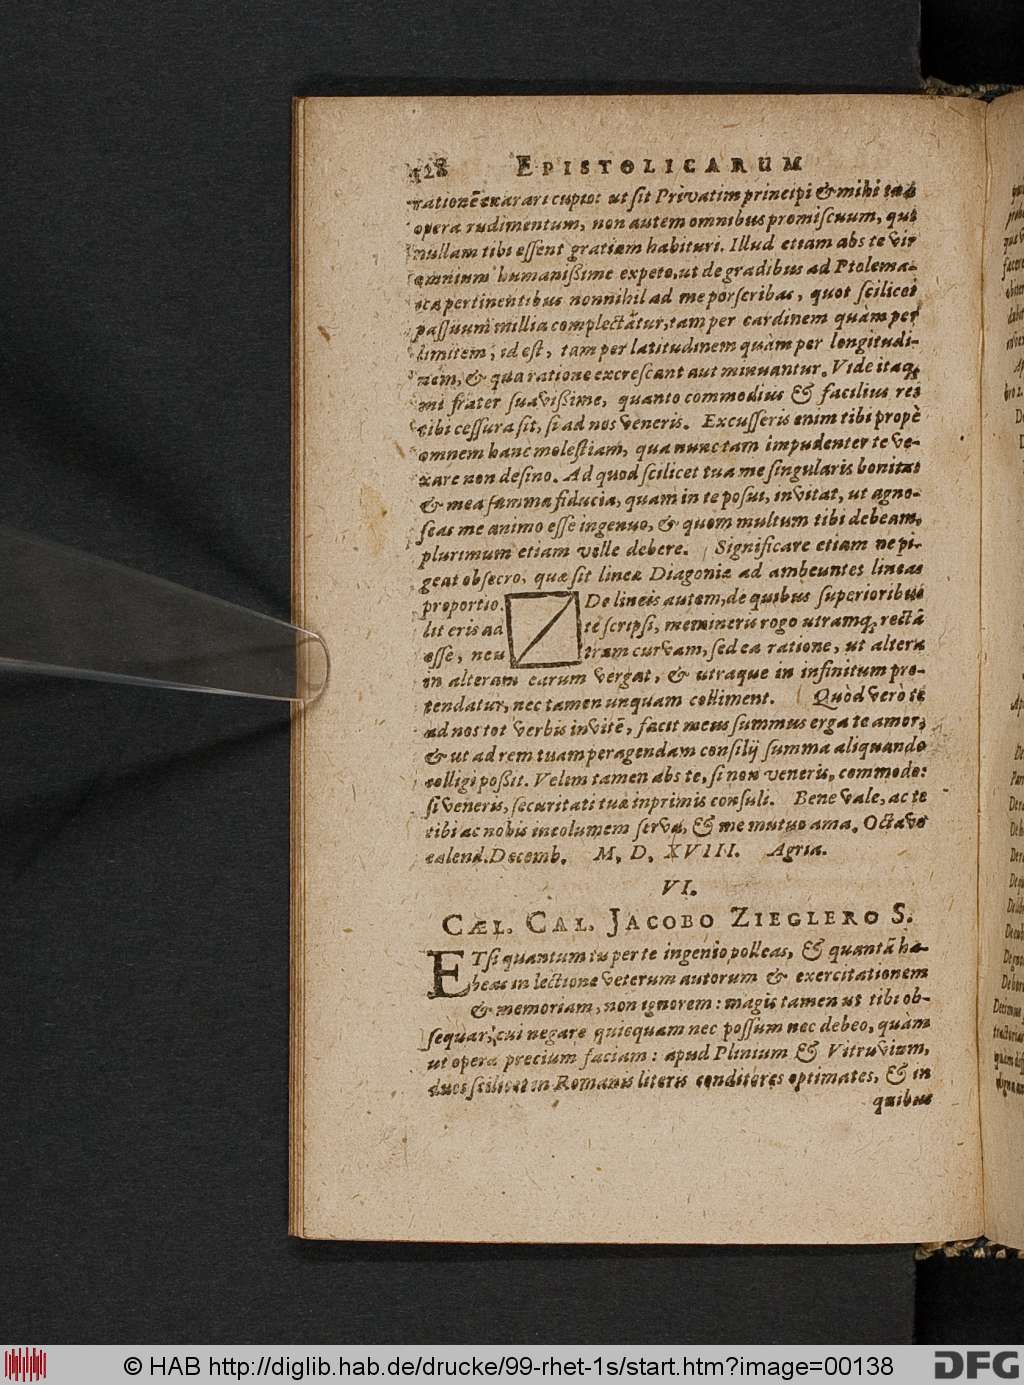 128 EPISTOLICARUM
rationē exarari cupio: ut sit Privatim principi & mihi tuâ
opera rudimentum, non autem omnibus promiscuum, qui
nullam tibi essent gratiam habituri. Illud etiam abs te vir
omnium humanißime expeto, ut de gradibus ad Ptolema-
ica pertinentibus nonnihil ad me porscribas, quot scilicet
passuum millia complectātur, tam per cardinem quàm per
limitem, id est, tam per latitudinem quàm per longitudi-
nem, & qua ratione excrescant aut minuantur. Vide itaq;
mi frater suavißime, quanto commodius & facilius res
tibi cessura sit, si ad nos veneris. Excusseris enim tibi propè
omnem hanc molestiam, qua nunc tam impudenter te ve-
xare non desino. Ad quod scilicet tua me singularis bonitas
& mea summa fiducia, quam in te posui, invitat, ut agno-
scas me animo esse ingenuo, & quem multum tibi debeam,
plurimum etiam velle debere. Significare etiam ne pi-
geat obsecro, quæ sit lineæ Diagoniæ ad ambeuntes lineas
proportio. De lineis autem, de quibus superioribus
literis ad te scripsi, memineris rogo utramq; rectā
esse, neutram curvam, sed ea ratione, ut altera
in alteram earum vergat, & utraque in infinitum pro-
tendatur, nec tamen unquam colliment. Quòd verò te
ad nos tot verbis invitē, facit meus summus erga te amor,
& ut ad rem tuam peragendam consilij summa aliquando
colligi poßit. Velim tamen abs te, si non veneris, commode:
si veneris, securitati tuæ inprimis consuli. Bene vale, ac te
tibi ac nobis incolumem serva, & me mutuo ama. Octavo
calend. Decemb. M. D. XVIII. Agriæ.
VI.
CÆL. CAL. JACOBO ZIEGLERO S.
ETsi quantum tu per te ingenio polleas, & quantā ha-
beas in lectione veterum autorum & exercitationem
& memoriam, non ignorem: magis tamen ut tibi ob-
sequar, cui negare quicquam nec possum nec debeo, quàm
ut operæ precium faciam: apud Plinium & Vitruvium,
duos scilicet in Romanis literis conditores optimates, & in
quibus
© HAB http://diglib.hab.de/drucke/99-rhet-1s/start.htm?image=00138
DFG